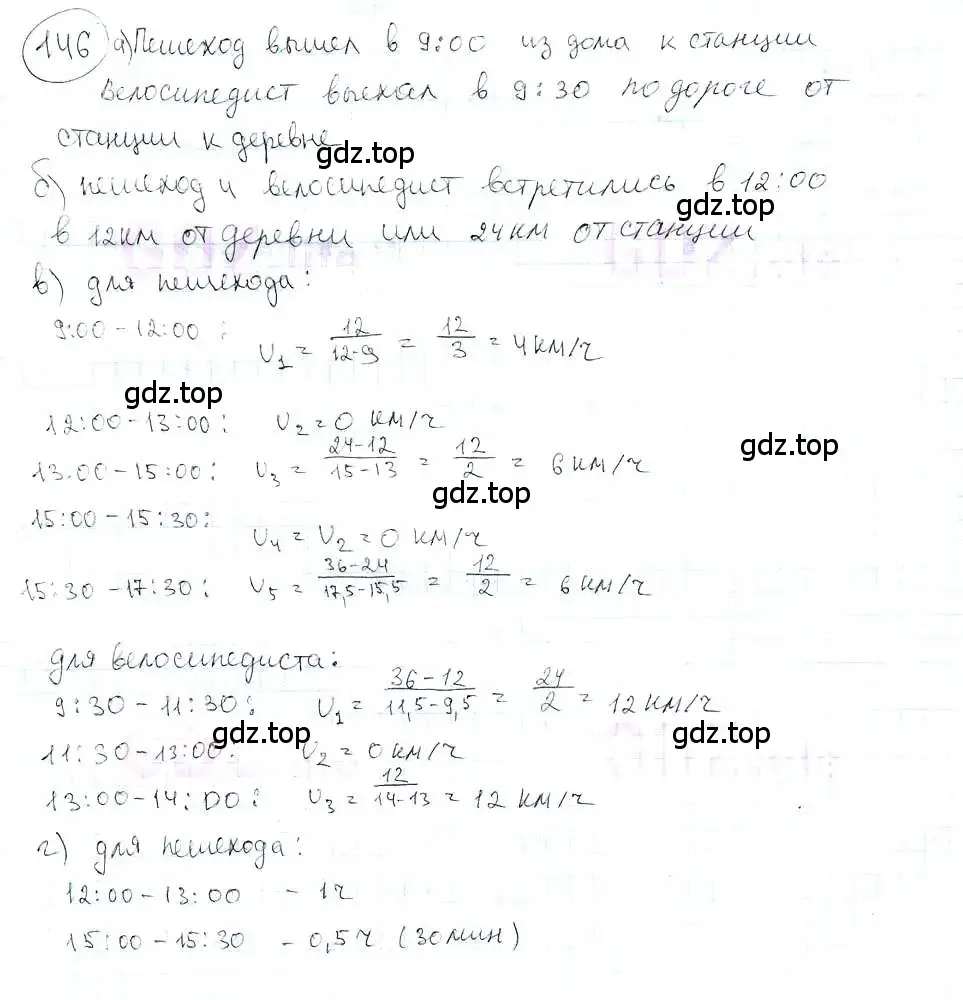 146 а) Пешеход вышел в 9:00 из дома к станции
Велосипедист выехал в 9:30 по дороге от
станции к деревне
gdz.top
б) пешеход и велосипедист встретились в 12:00
gdz.top
в 12км от деревни или 24км от станции
в) для пешехода:
9:00-12:00 : U₁ = 12/12-9 = 12/3 = 4км/ч
gdz.top
12:00-13:00: U₂=0 км/ч
gdz.top
13.00-15:00: U₃ = 24-12/15-13 = 12/2 = 6км/ч
gdz.top
15:00-15:30: U₄ = U₂ = 0 км/ч
15:30-17:30: U₅ = 36-24/17,5-15,5 = 12/2 = 6км/ч
для велосипедиста:
9:30-11:30: U₁ = 36-12/11,5-9,5 = 24/2 = 12км/ч
gdz.top gdz.top
11:30-13:00: U₂ = 0км/ч
13:00-14:00: U₃ = 12/14-13 = 12 км/ч
г) для пешехода:
12:00-13:00 - 1ч
15:00-15:30 - 0,5ч (30мин)